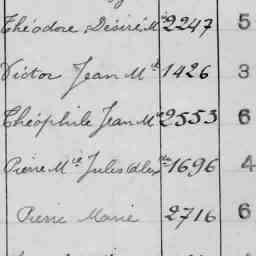 Théodore Désiré Mie 2247 5
Victor Jean Mie 1426 3
Théophile Jean Mie 2553 6
Pierre Mie Jules Alexdre 1696 4
Pierre Marie 2716 6